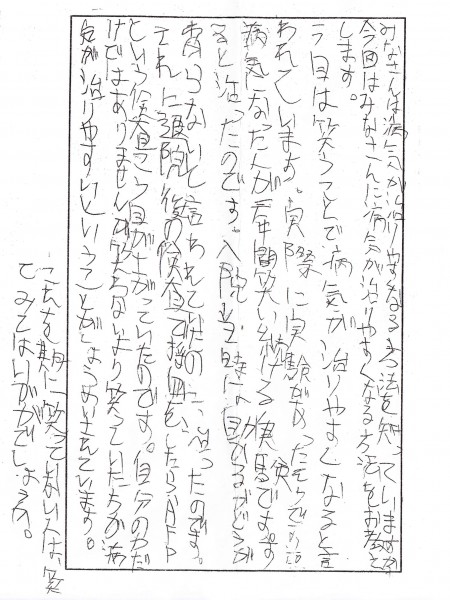 みなさんは病気が治りやすくなる方法を知っていますか
今回はみなさんに病気が治りやすくなる方法をお教え
します。
今日は笑うことで病気が治りやすくなると言
われています。実際に実験があったそうで
病気になった人が年間笑い続ける実験です。す
ると治ったのです。入院当時は目がるがどうか
わからないと言われていたのに、治ったのです。
それに退院後の検査で採血をしたらAFP
という検査こう目が下がっていたのです。自分のかだ
けではありませんが笑わないより笑っていた方が病
気が治りやすいということがしょうめいされています。
これを期に笑っていない人は、笑
てみてはいかがでしょうか。